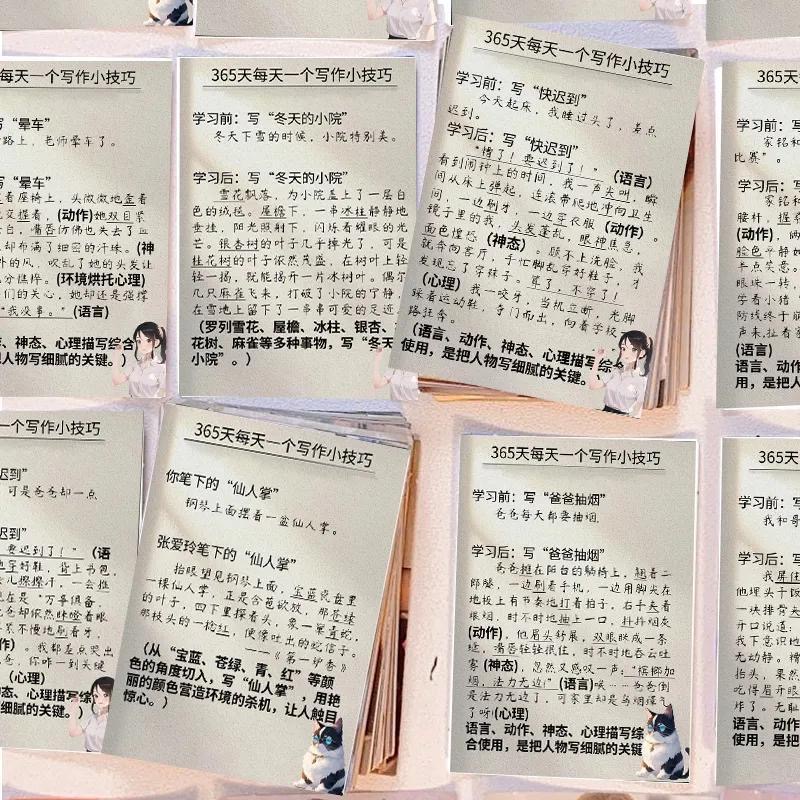 天每天一个写作小技巧
写“晕车”
路上，老师晕车了。
写“晕车”
着座椅上，头微微地歪着
交握着，(动作)她双目紧
白，嘴唇仿佛也失去了血
却布满了细密的汗珠。(神
外的风，吹乱了她的头发让
分憔悴。(环境烘托心理)
们的关心，她却还是强撑
“我没事。”(语言)
、神态、心理描写综合
把人物写细腻的关键。)
365天每天一个写作小技巧
学习前：写“冬天的小院”
冬天下雪的时候，小院特别美。
学习后：写“冬天的小院”
雪花飘落，为小院盖上了一层白
色的绒毯。屋檐下，一串冰柱静静地
垂挂，阳光照射下，闪烁着耀眼的光
芒。银杏树的叶子几乎掉光了，可是
桂花树的叶子依然茂盛，在树叶上轻
轻一揭，就能揭开一片冰树叶。偶尔
几只麻雀飞来，打破了小院的宁静，
在雪地上留下了一串串可爱的足迹。
(罗列雪花、屋檐、冰柱、银杏、
花树、麻雀等多种事物，写“冬天
小院”。)
365天每天一个写作小技巧
学习前：写“快迟到”
今天起床，我睡过头了，差点
迟到。
学习后：写“快迟到”
“糟了！要迟到了！”(语言)
看到闹钟上的时间，我一声尖叫，瞬
间从床上弹起，连滚带爬地冲向卫生
间，一边刷牙，一边穿衣服(动作)。
镜子里的我，头发蓬乱，眼神焦急，
面色惶恐(神态)。顾不上洗脸，我
就奔向客厅，手忙脚乱穿好鞋子，才
发现忘了穿袜子。算了，不穿了！
(心理)我一咬牙，当机立断，光脚
踩着运动鞋，夺门而出，向着学校
路狂奔。
(语言、动作、神态、心理描写综合
使用，是把人物写细腻的关键。)
365天每
学习前：写
家铭和
比赛”。
学习后：写
家铭和
腰杆，握
(动作)，俩
脸色平静
半点笑意。
眼珠一转，
学着小猪
防线终于
声来，扯着
(语言)
语言、动
用，是把人
天每天一个写作小技巧
迟到”
可是爸爸却一点
迟到”
要迟到了！”(语
地穿好鞋，背上书包，
会儿擦擦汗，一会推
现在是“万事俱备，
爸却依然眯瞪着眼
紧不慢地刷着牙，
)。我都差点哭出
爸，你咋一到关键
(心理)
、神态、心理描写综
把人物写细腻的关键。)
365天每天一个写作小技巧
你笔下的“仙人掌”
钢琴上面摆着一盆仙人掌。
张爱玲笔下的“仙人掌”
抬眼望见钢琴上面，宝蓝瓷盘里
一棵仙人掌，正是含苞欲放，那苍绿
的叶子，四下里探着头，象一窠青蛇，
那枝头的一捻红，便像吐出的蛇信子。
——《第一炉香》
(从“宝蓝、苍绿、青、红”等颜
色的角度切入，写“仙人掌”，用艳
丽的颜色营造环境的杀机，让人触目
惊心。)
365天每天一个写作小技巧
学习前：写“爸爸抽烟”
爸爸每天都要抽烟。
学习后：写“爸爸抽烟”
爸爸瘫在阳台的躺椅上，翘着二
郎腿，一边刷着手机，一边用脚尖在
地板上有节奏地打着拍子，右手夹着
根烟，时不时地抽上一口，抖抖烟灰
(动作)，他眉头舒展，双眼眯成一条
缝，嘴唇轻轻抿住，时不时地吞云吐
雾(神态)，忽然又感叹一声：“槟榔加
烟，法力无边！”(语言)唉……爸爸倒
是法力无边了，可家里却是乌烟瘴气
了呀！(心理)
语言、动作、神态、心理描写综
合使用，是把人物写细腻的关键
365天
学习前：写
我和哥
学习后：写
我屏住
他埋头干饭
一块排骨
开口说道：
我下意识地
无动静。
抬头，果然
吃得眉开眼
炸了。无耻
语言、动
使用，是把